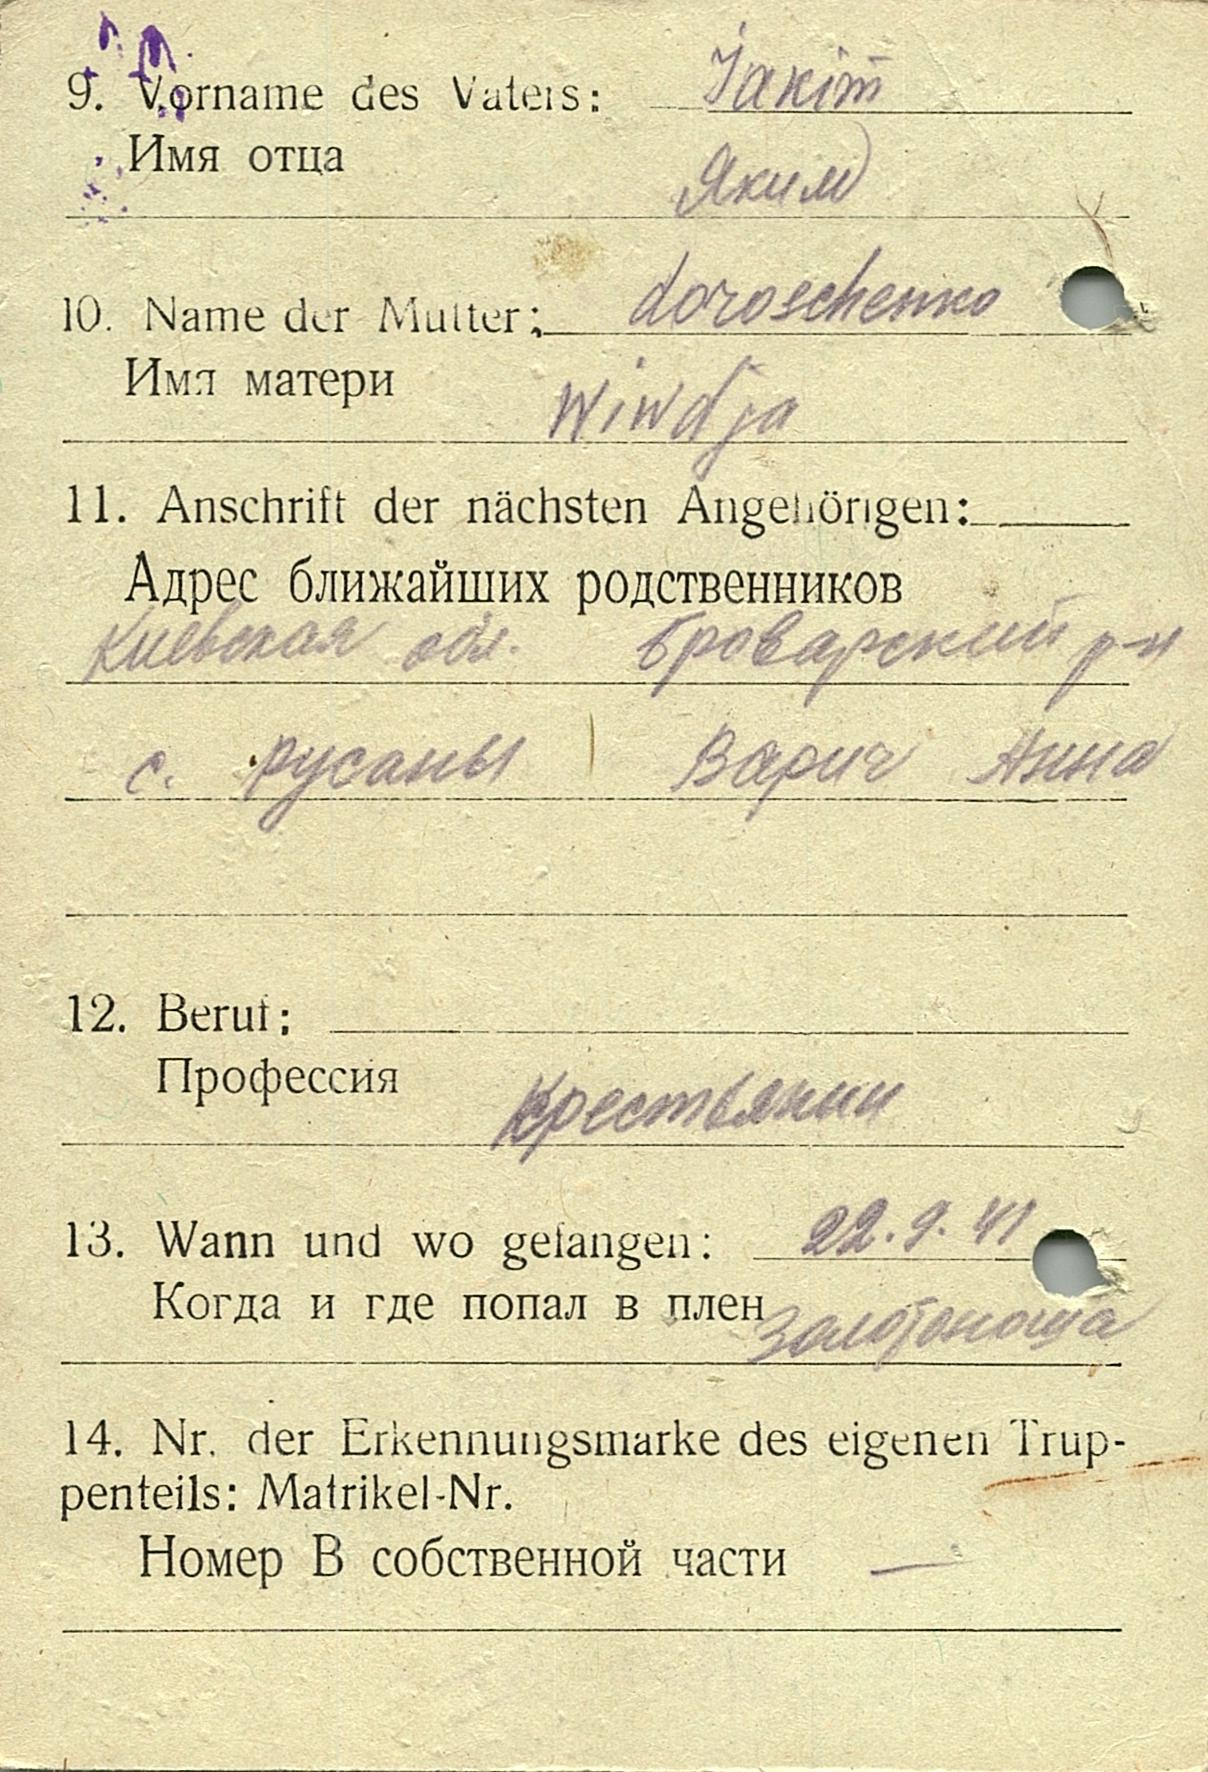 9. Vorname des Vaters: Jakim
Имя отца
Яким
10. Name der Mutter: doroschenko
Имя матери
Wiwdja
11. Anschrift der nächsten Angehörigen:
Адрес ближайших родственников
Киевская обл. Броварский р-н
с. Русаны Варич Анна
12. Beruf:
Профессия
Крестьянин
13. Wann und wo gefangen: 22.9.41
Когда и где попал в плен
Золотоноша
14. Nr. der Erkennungsmarke des eigenen Trup-
penteils: Matrikel-Nr.
Номер В собственной части —